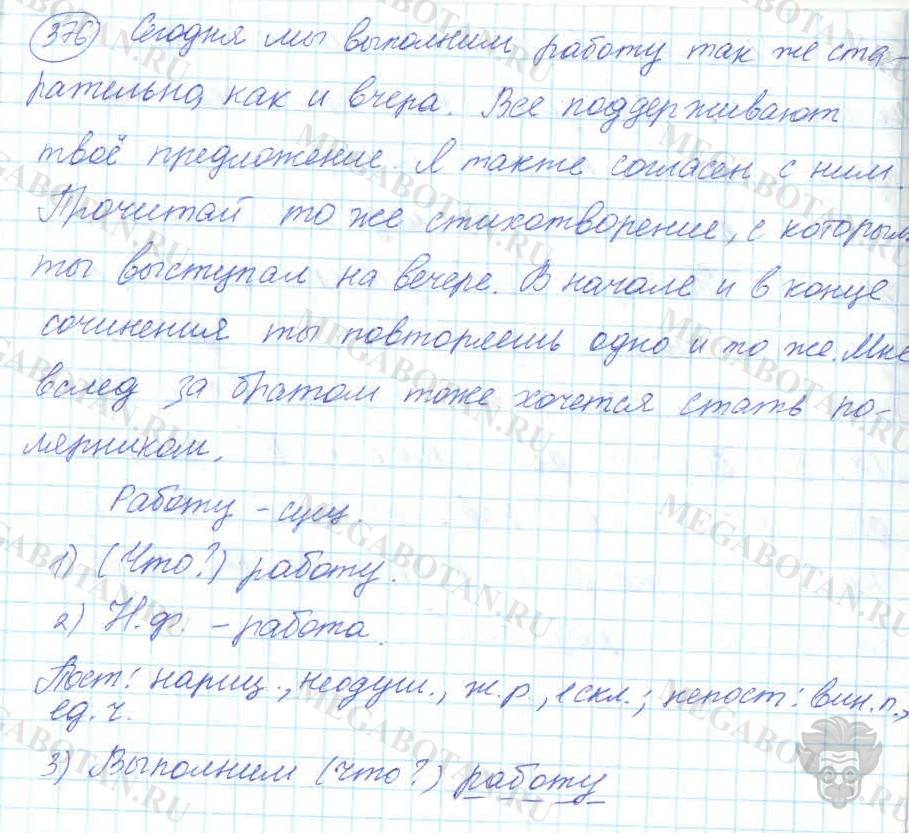 376 Сегодня мы выполним работу так же ста-
рательно, как и вчера. Все поддерживают
твоё предложение. Я также согласен с ним.
Прочитай то же стихотворение, с которым
ты выступал на вечере. В начале и в конце
сочинения ты повторяешь одно и то же. Мне
вслед за братом тоже хочется стать по-
лярником.
Работу - сущ.
1) (Что?) работу.
2) Н.ф. - работа.
Пост: нариц., неодуш., ж.р., 1 скл.; непост: вин.п.,
ед.ч.
3) Выполним (что?) работу
MEGABOTAN.RU